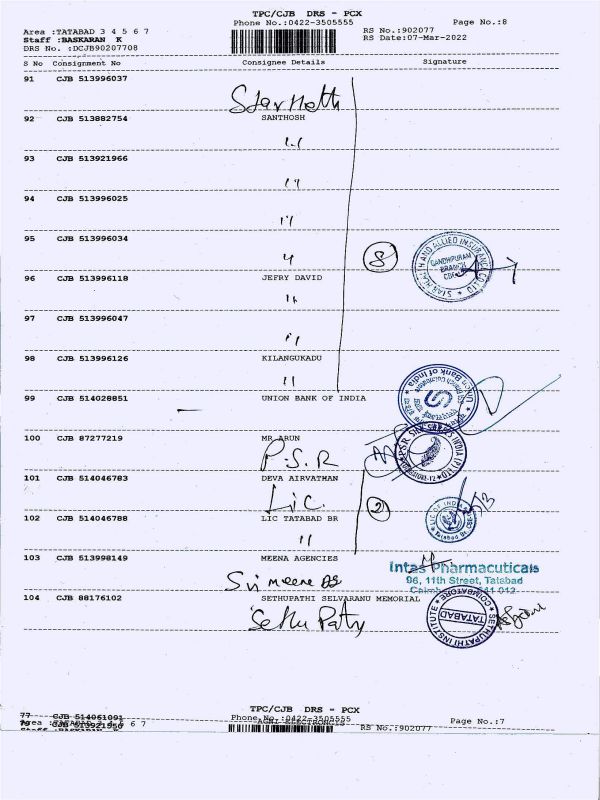 TPC/CJB DRS - PCX
Phone No.:0422-3505555
Page No.:8
Area :TATABAD 3 4 5 6 7
RS No.:902077
Staff :BASKARAN K
RS Date:07-Mar-2022
DRS No. :DCJB90207708
S No Consignment No Consignee Details Signature
91 CJB 513996037
Star Health
92 CJB 513882754 SANTHOSH
"
93 CJB 513921966
"
94 CJB 513996025
"
95 CJB 513996034
"
8
STAR HEALTH AND ALLIED INSURANCE CO LTD
GANDHIPURAM
BRANCH
96 CJB 513996118 JEFRY DAVID
"
97 CJB 513996047
"
98 CJB 513996126 KILANGUKADU
"
99 CJB 514028851 UNION BANK OF INDIA
Union Bank of India
100 CJB 87277219 MR ARUN
P.S.R
101 CJB 514046783 DEVA AIRVATHAN
LIC
2
102 CJB 514046788 LIC TATABAD BR
"
LIC OF INDIA
Tatabad Br.
103 CJB 513998149 MEENA AGENCIES
Intas Pharmacuticals
96, 11th Street, Tatabad
Sri meena
104 CJB 88176102 SETHUPATHI SELVARANU MEMORIAL
Sethu Pathy
SETHUPATHI INSTITUTE
COIMBATORE
TATABAD
TPC/CJB DRS - PCX
77 CJB 514061091
Phone No.:0422-3505555
Page No.:7
RS No.:902077